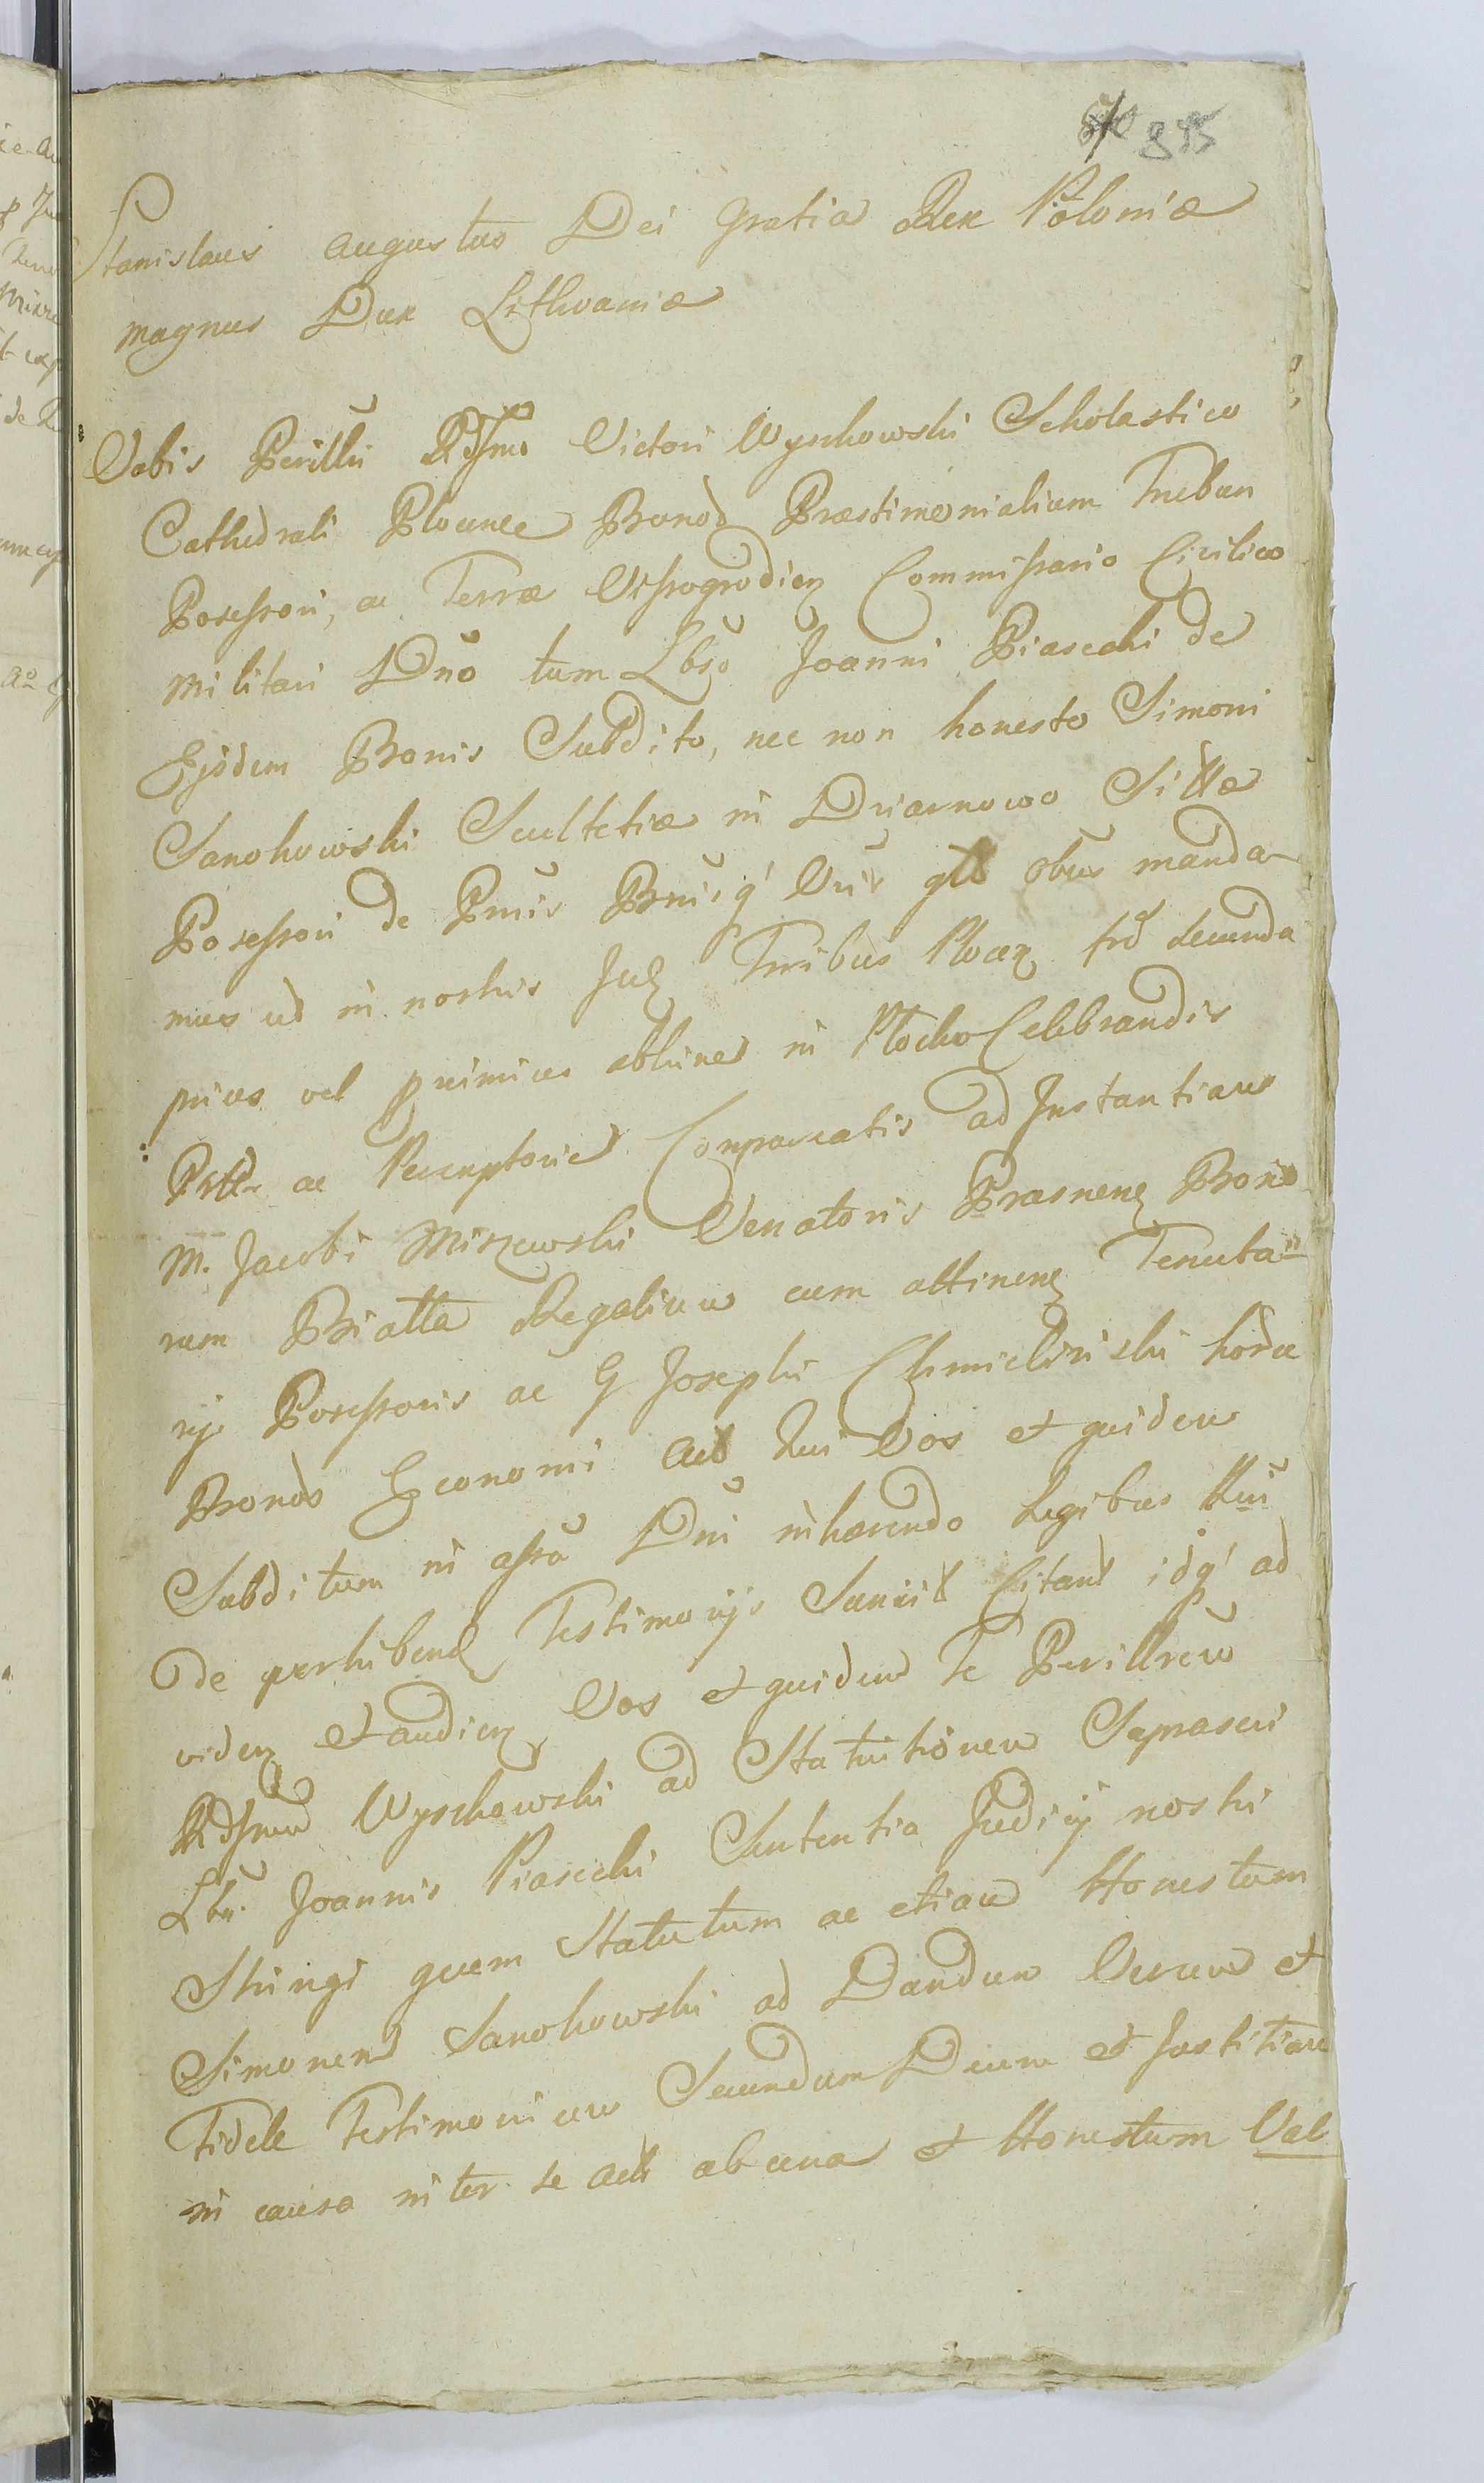 895
Stanislaus Augustus Dei Gratia Rex Poloniæ
magnus Dux Lithvaniæ
Vobis Perillri Rdsmo Victori Wyschowski Scholastico
Cathedrali Plocense Bonoð Præstimonialium
Posessori, ac Terræ Wyssogrodien Commissario Civilico
Militari Dnō tum Lbsō Joanni Piasecki de
Ejōdem Bonis Subdito, nec non honesto Simoni
Sanohowski Scultetiæ in Dziarnowo Sittæ
Posessori de Psnis Bnisq' Vris gtt obus manda
mus ut in nostris Jud Trribus Plocen fro secunda
prius vel primius abhinc in Plocko Celebrandis
Psttr ac Peremptorie Compareatis ad Instantiam
M. Jacobi Miszewski Venatoris Præsnen Bono
rum Biatta Regalium cum attinen Tenuta=
rij Posessoris ac G Josephi Chmielinski horæ
Bonoð Economi Act Qui Vos et quidem
Subditum in assā Dni inhærendo Legibus Rni
De perhibend Testimonijs Sancit Citant idq' ad
viden et audien Vos et quidem Te Perillrem
Rdsmum Wyschowski ad Statuitionem Suprascri
Lbr. Joannis Piasecki Sententia Judicij nostri
Stringi quem Statutum ac etiam Honestum
Simonem Sanohowski ad Dandum Verum et
Fidele Testimonium Secundum Deum et Justitiam
in causa inter se actt ab una et Honestum Val